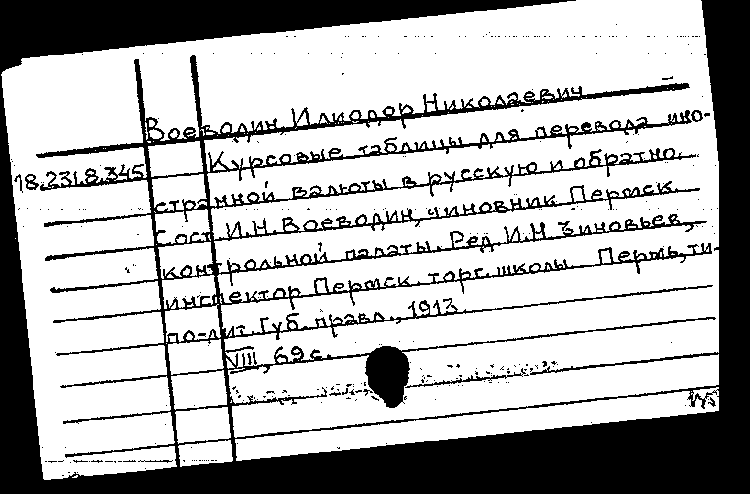 Воеводин, Илиодор Николаевич
18.231.8.345
Курсовые таблицы для перевода ино-
странной валюты в русскую и обратно.
Сост. И.Н. Воеводин, чиновник Пермск.
контрольной палаты. Ред. И.Н. Зиновьев,
инспектор Пермск. торг. школы. Пермь, ти-
по-лит. Губ. правл., 1913.
VIII, 69 с.